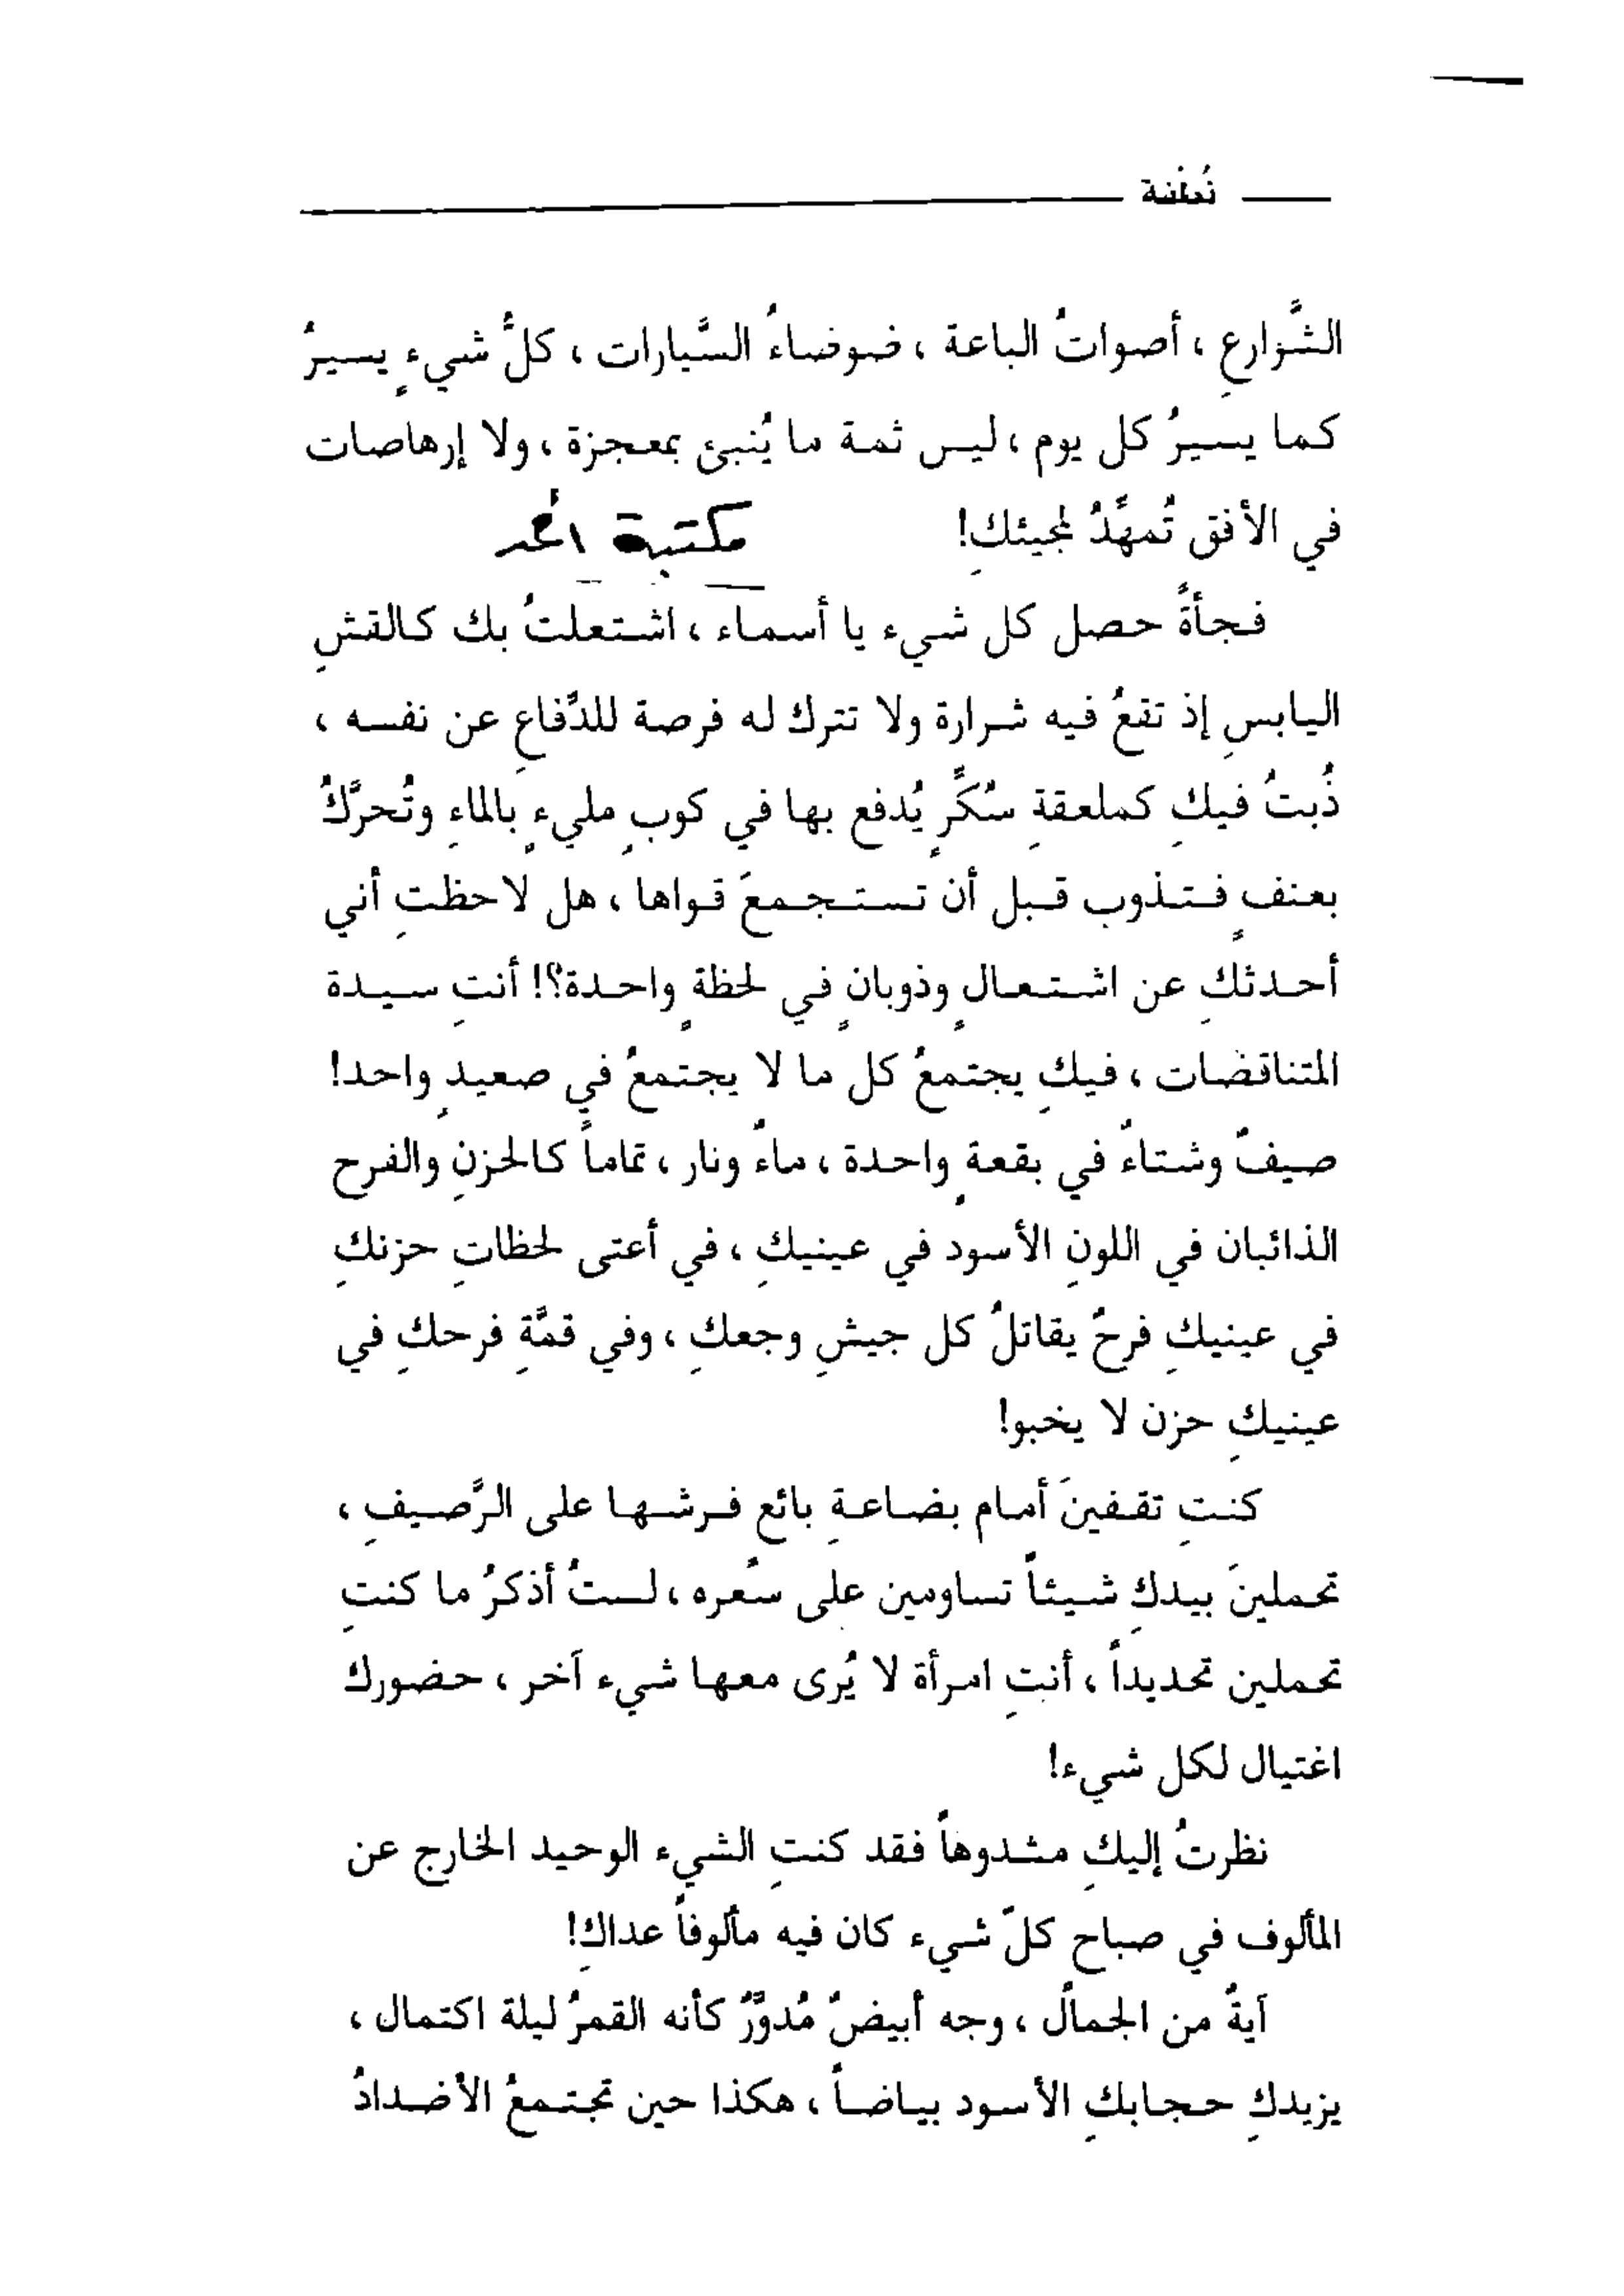 نُطفة
الشَّوارعِ ، أصواتُ الباعة ، ضوضاءُ السَّيارات ، كلُّ شيءٍ يسيرُ
كما يسيرُ كل يوم ، ليس ثمة ما يُنبئ بمعجزة ، ولا إرهاصات
في الأفق تُمهِّدُ لمجيئكِ!
مكتبة
فجأةً حصل كل شيء يا أسماء ، اشتعلتُ بك كالقشِ
اليابسِ إذ تقعُ فيه شرارة ولا تترك له فرصة للدِّفاعِ عن نفسه ،
ذُبتُ فيكِ كملعقةِ سُكَّرٍ يُدفع بها في كوبٍ مليءٍ بالماءِ وتُحرَّكُ
بعنفٍ فتذوب قبل أن تستجمعَ قواها ، هل لاحظتِ أني
أحدثكِ عن اشتعالٍ وذوبانٍ في لحظةٍ واحدة؟! أنتِ سيدة
المتناقضات ، فيكِ يجتمعُ كل ما لا يجتمعُ في صعيدٍ واحد!
صيفٌ وشتاءٌ في بقعةٍ واحدة ، ماءٌ ونار ، تماماً كالحزنِ والفرح
الذائبان في اللونِ الأسود في عينيكِ ، في أعتى لحظاتِ حزنكِ
في عينيكِ فرحٌ يقاتلُ كل جيشِ وجعكِ ، وفي قمَّةِ فرحكِ في
عينيكِ حزن لا يخبو!
كنتِ تقفينَ أمام بضاعةِ بائع فرشها على الرَّصيفِ ،
تحملينَ بيدكِ شيئاً تساومين على سعره ، لستُ أذكرُ ما كنتِ
تحملين تحديداً ، أنتِ امرأة لا يُرى معها شيء آخر ، حضورك
اغتيال لكل شيء!
نظرتُ إليكِ مشدوهاً فقد كنتِ الشيء الوحيد الخارج عن
المألوف في صباح كلّ شيء كان فيه مألوفاً عداكِ!
آيةٌ من الجمال ، وجه أبيضٌ مُدوَّرٌ كأنه القمرُ ليلة اكتمال ،
يزيدكِ حجابكِ الأسود بياضاً ، هكذا حين تجتمعُ الأضدادُ